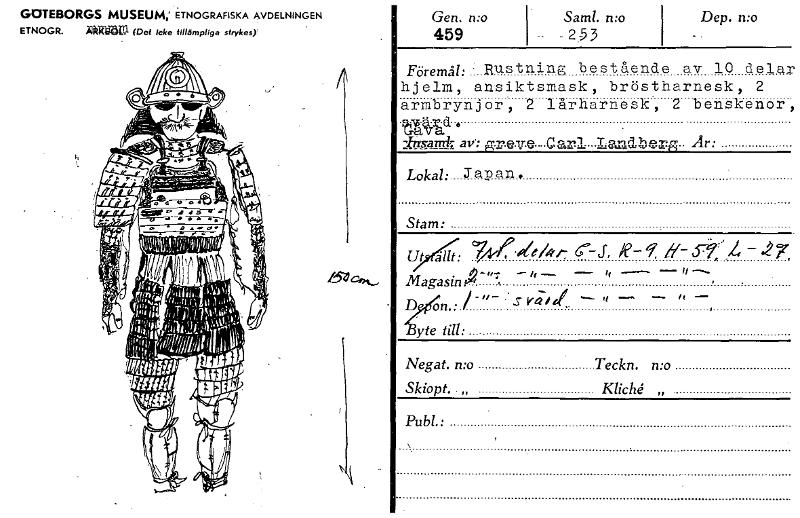 GÖTEBORGS MUSEUM, ETNOGRAFISKA AVDELNINGEN
ETNOGR. ARKEOL. (Det icke tillämpliga strykes)
150 cm
Gen. n:o
459
Saml. n:o
253
Dep. n:o
Föremål: Rustning bestående av 10 delar
hjelm, ansiktsmask, bröstharnesk, 2
armbrynjor, 2 lårharnesk, 2 benskenor,
svärd.
Gåva
Insaml. av: greve Carl Landberg År:
Lokal: Japan.
Stam:
Utställt: 7 st. delar C-S. R-9. H-59. L-27.
Magasin: 2 -"- -"- — " — — " —
Depon.: 1 -"- svärd. — " — — " —
Byte till:
Negat. n:o Teckn. n:o
Skiopt. „ Kliché „
Publ.: